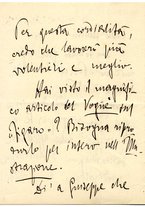 Per questa cordialità,
credo che lavorerei più
volentieri e meglio.
Hai visto il magnifi-
co articolo del Vogüe sul
Figaro? Bisogna ripro-
durlo per intero nel Ma-
Di' a Giuseppe che